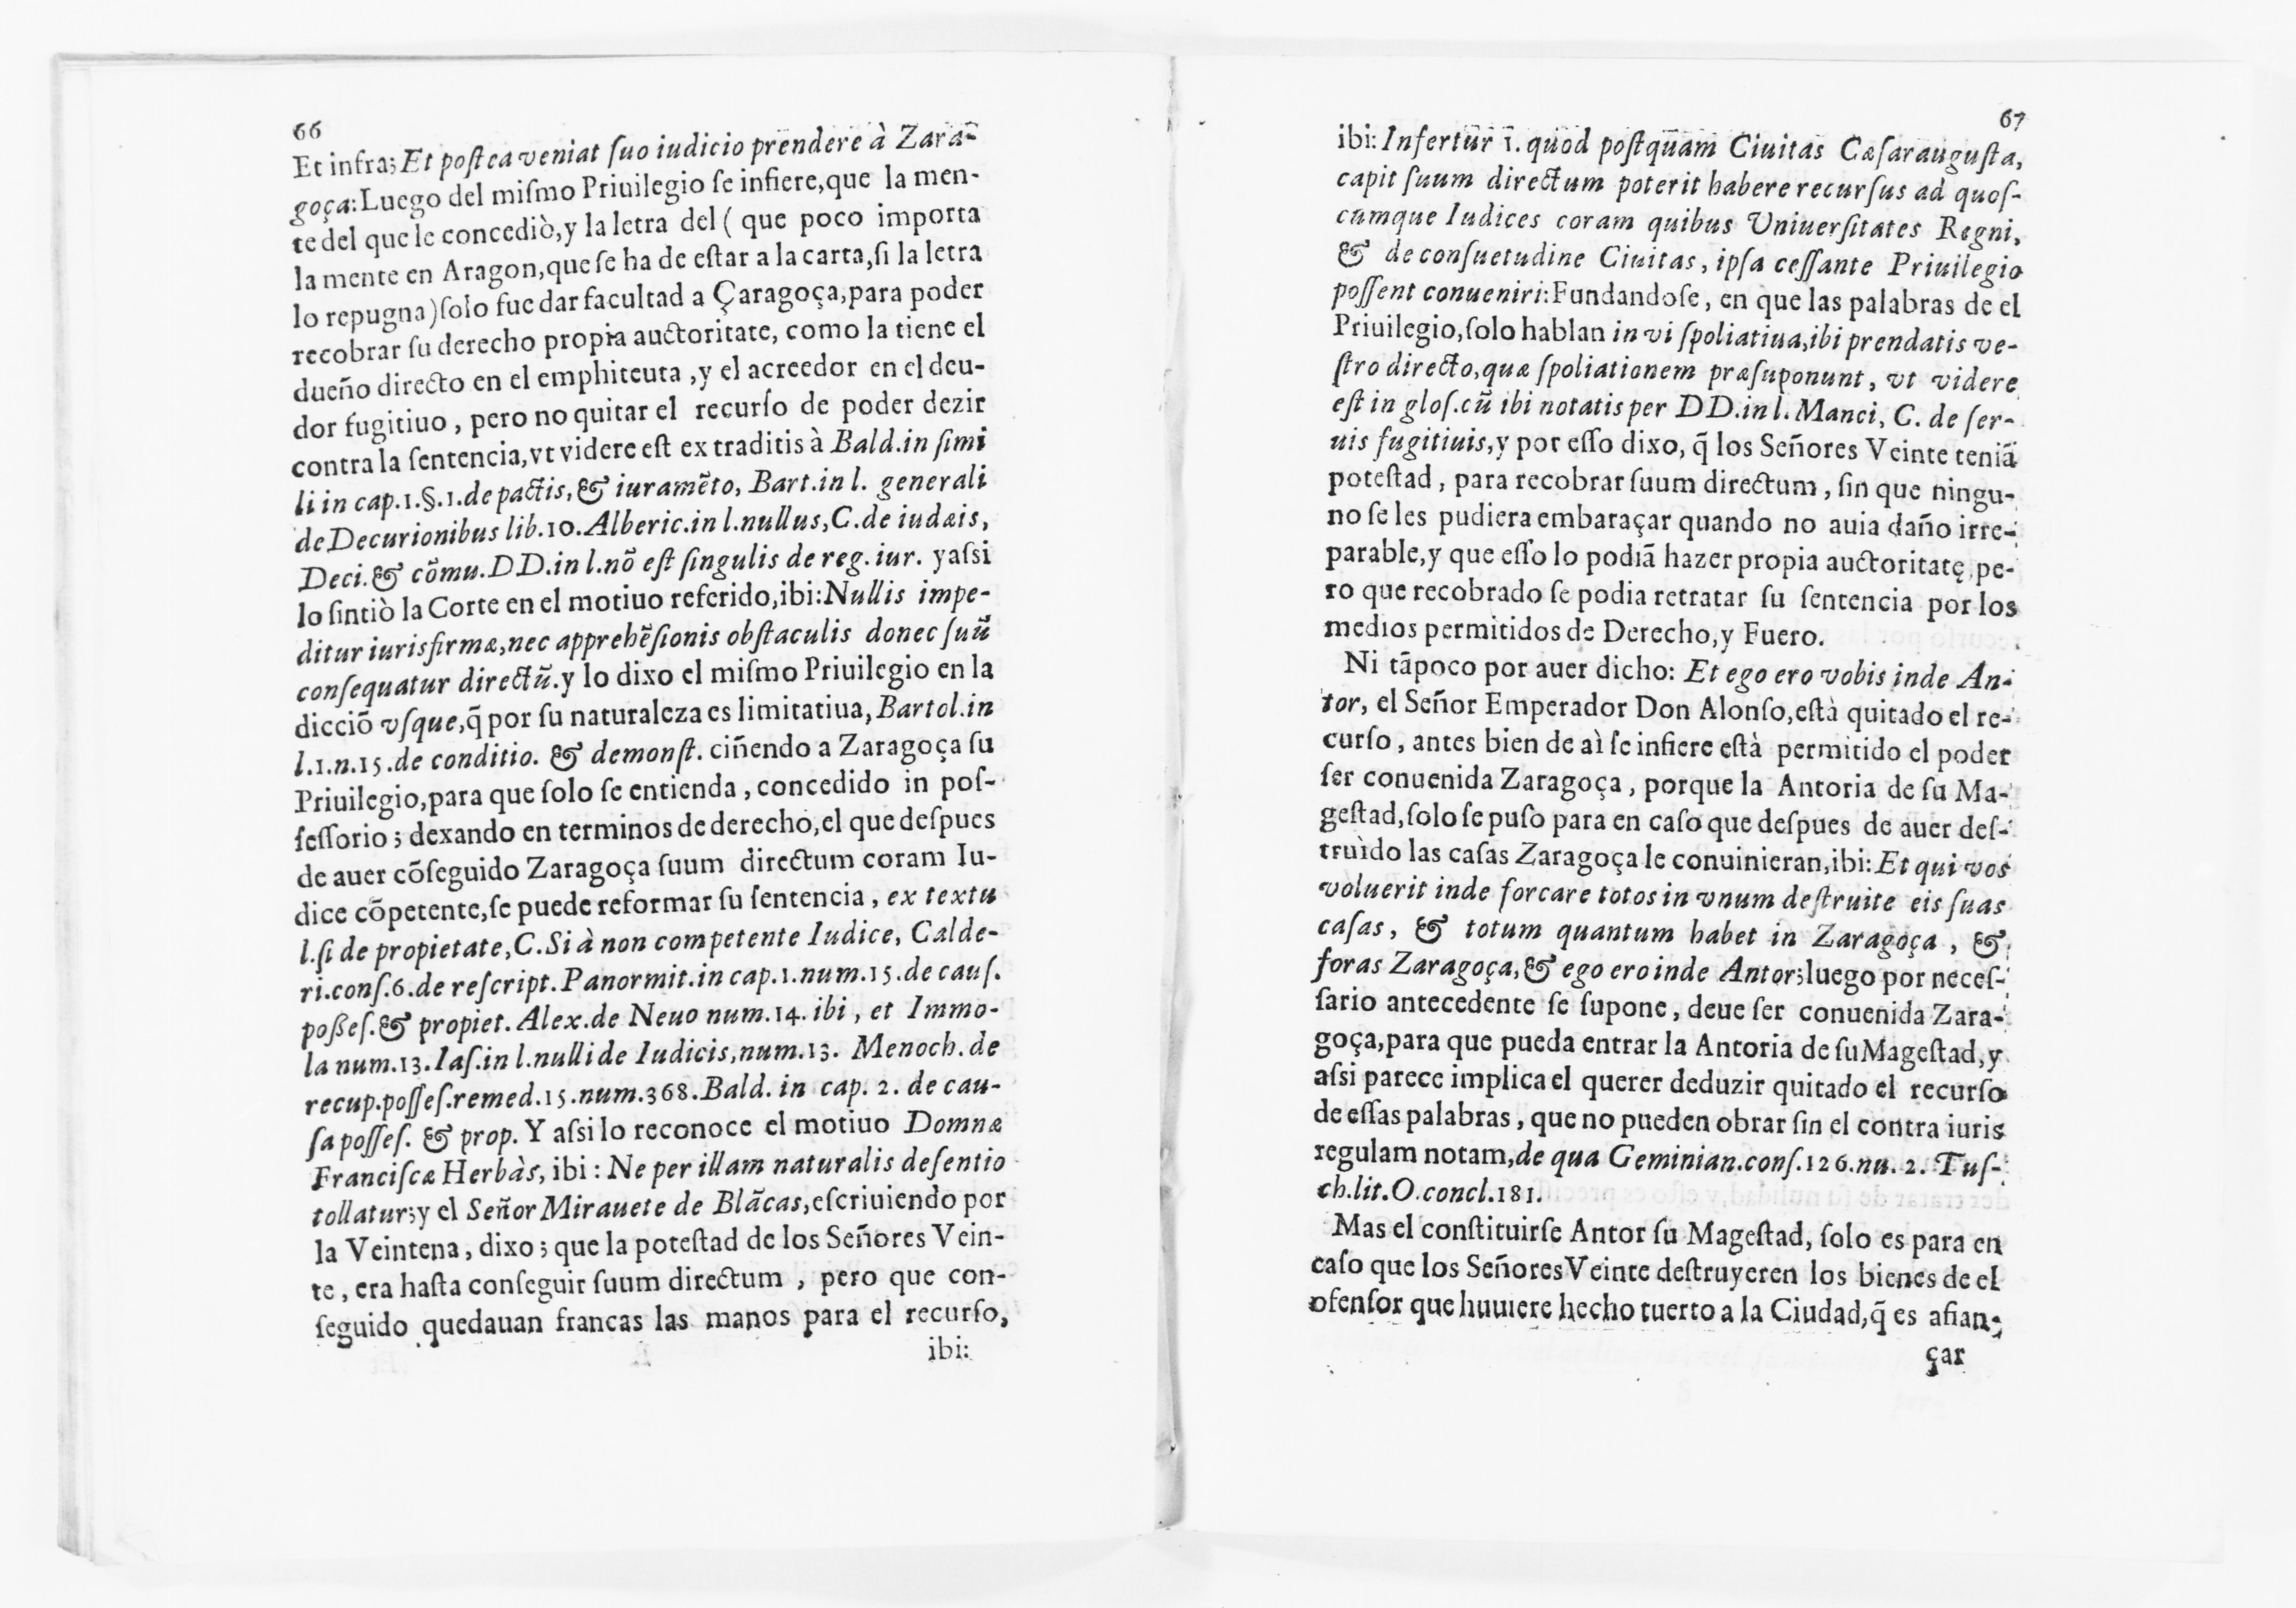 66
Et infra; Et postea veniat ſuo iudicio prendere à Zara-
goça: Luego del miſmo Priuilegio ſe infiere, que la men-
te del que le concediò, y la letra del ( que poco importa
la mente en Aragon, que ſe ha de eſtar a la carta, ſi la letra
lo repugna) ſolo fue dar facultad a Çaragoça, para poder
recobrar ſu derecho propria auctoritate, como la tiene el
dueño directo en el emphiteuta, y el acreedor en el deu-
dor fugitiuo, pero no quitar el recurſo de poder dezir
contra la ſentencia, vt videre eſt ex traditis à Bald. in ſimi
li in cap. 1. §. 1. de pactis, & iuramẽto, Bart. in l. generali
de Decurionibus lib. 10. Alberic. in l. nullus, C. de iudæis,
Deci. & cõmu. DD. in l. nõ eſt ſingulis de reg. iur. y aſsi
lo ſintiò la Corte en el motiuo referido, ibi: Nullis impe-
ditur iurisfirmæ, nec apprehẽſionis obſtaculis donec ſuũ
conſequatur directũ. y lo dixo el miſmo Priuilegio en la
dicciõ vſque, q̃ por ſu naturaleza es limitatiua, Bartol. in
l. 1. n. 15. de conditio. & demonſt. ciñendo a Zaragoça ſu
Priuilegio, para que ſolo ſe entienda, concedido in poſ-
ſeſſorio; dexando en terminos de derecho, el que deſpues
de auer cõſeguido Zaragoça ſuum directum coram Iu-
dice cõpetente, ſe puede reformar ſu ſentencia, ex textu
l. ſi de propietate, C. Si à non competente Iudice, Calde-
ri. conſ. 6. de reſcript. Panormit. in cap. 1. num. 15. de cauſ.
poßeſ. & propiet. Alex. de Neuo num. 14. ibi, et Immo-
la num. 13. Iaſ. in l. nulli de Iudicis, num. 13. Menoch. de
recup. poſſeſ. remed. 15. num. 368. Bald. in cap. 2. de cau-
ſa poſſeſ. & prop. Y aſsi lo reconoce el motiuo Domnæ
Franciſcæ Herbàs, ibi: Ne per illam naturalis defentio
tollatur; y el Señor Mirauete de Blãcas, eſcriuiendo por
la Veintena, dixo; que la poteſtad de los Señores Vein-
te, era haſta conſeguir ſuum directum, pero que con-
ſeguido quedauan francas las manos para el recurſo,
ibi:
67
ibi: Infertur 1. quod poſtquam Ciuitas Cæſarauguſta,
capit ſuum directum poterit habere recurſus ad quoſ-
cumque Iudices coram quibus Vniuerſitates Regni,
& de conſuetudine Ciuitas, ipſa ceſſante Priuilegio
poſſent conueniri: Fundandoſe, en que las palabras de el
Priuilegio, ſolo hablan in vi ſpoliatiua, ibi prendatis ve-
ſtro directo, quæ ſpoliationem præſuponunt, vt videre
eſt in gloſ. cũ ibi notatis per DD. in l. Manci, C. de ſer-
uis fugitiuis, y por eſſo dixo, q̃ los Señores Veinte teniã
poteſtad, para recobrar ſuum directum, ſin que ningu-
no ſe les pudiera embaraçar quando no auia daño irre-
parable, y que eſſo lo podiã hazer propia auctoritate, pe-
ro que recobrado ſe podia retratar ſu ſentencia por los
medios permitidos de Derecho, y Fuero.
Ni tãpoco por auer dicho: Et ego ero vobis inde An-
tor, el Señor Emperador Don Alonſo, eſtà quitado el re-
curſo, antes bien de aì ſe infiere eſtà permitido el poder
ſer conuenida Zaragoça, porque la Antoria de ſu Ma-
geſtad, ſolo ſe puſo para en caſo que deſpues de auer deſ-
truìdo las caſas Zaragoça le conuinieran, ibi: Et qui vos
voluerit inde forcare totos in vnum deſtruite eis ſuas
caſas, & totum quantum habet in Zaragoça, &
foras Zaragoça, & ego ero inde Antor; luego por neceſ-
ſario antecedente ſe ſupone, deue ſer conuenida Zara-
goça, para que pueda entrar la Antoria de ſu Mageſtad, y
aſsi parece implica el querer deduzir quitado el recurſo
de eſſas palabras, que no pueden obrar ſin el contra iuris
regulam notam, de qua Geminian. conſ. 126. nu. 2. Tuſ-
ch. lit. O. concl. 181.
Mas el conſtituirſe Antor ſu Mageſtad, ſolo es para en
caſo que los Señores Veinte deſtruyeren los bienes de el
ofenſor que huuiere hecho tuerto a la Ciudad, q̃ es afian-
çar